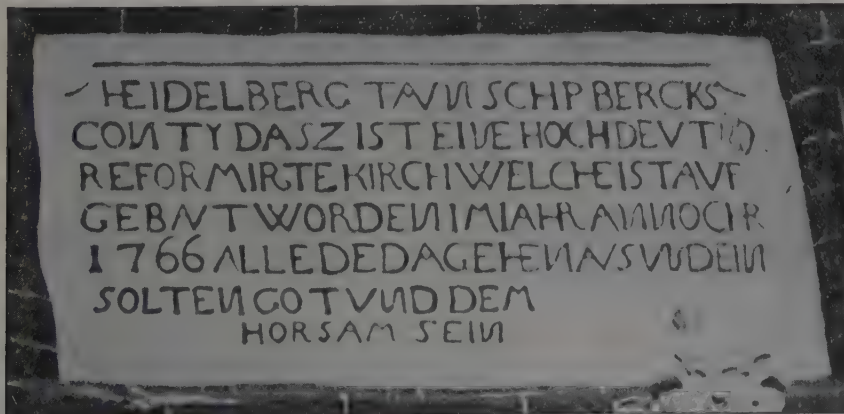 HEIDELBERG TAVN SCHP BERCKS
COUNTY DASZ IST EINE HOCH DEVT
REFORMIRTE KIRCH WELCHE IST AVF
GEBAVT WORDEN IM IAHR ANNO CIR
1766 ALLE DE DA GEHEN AVS VND EIN
SOLTEN GOT VND DEM
HORSAM SEIN